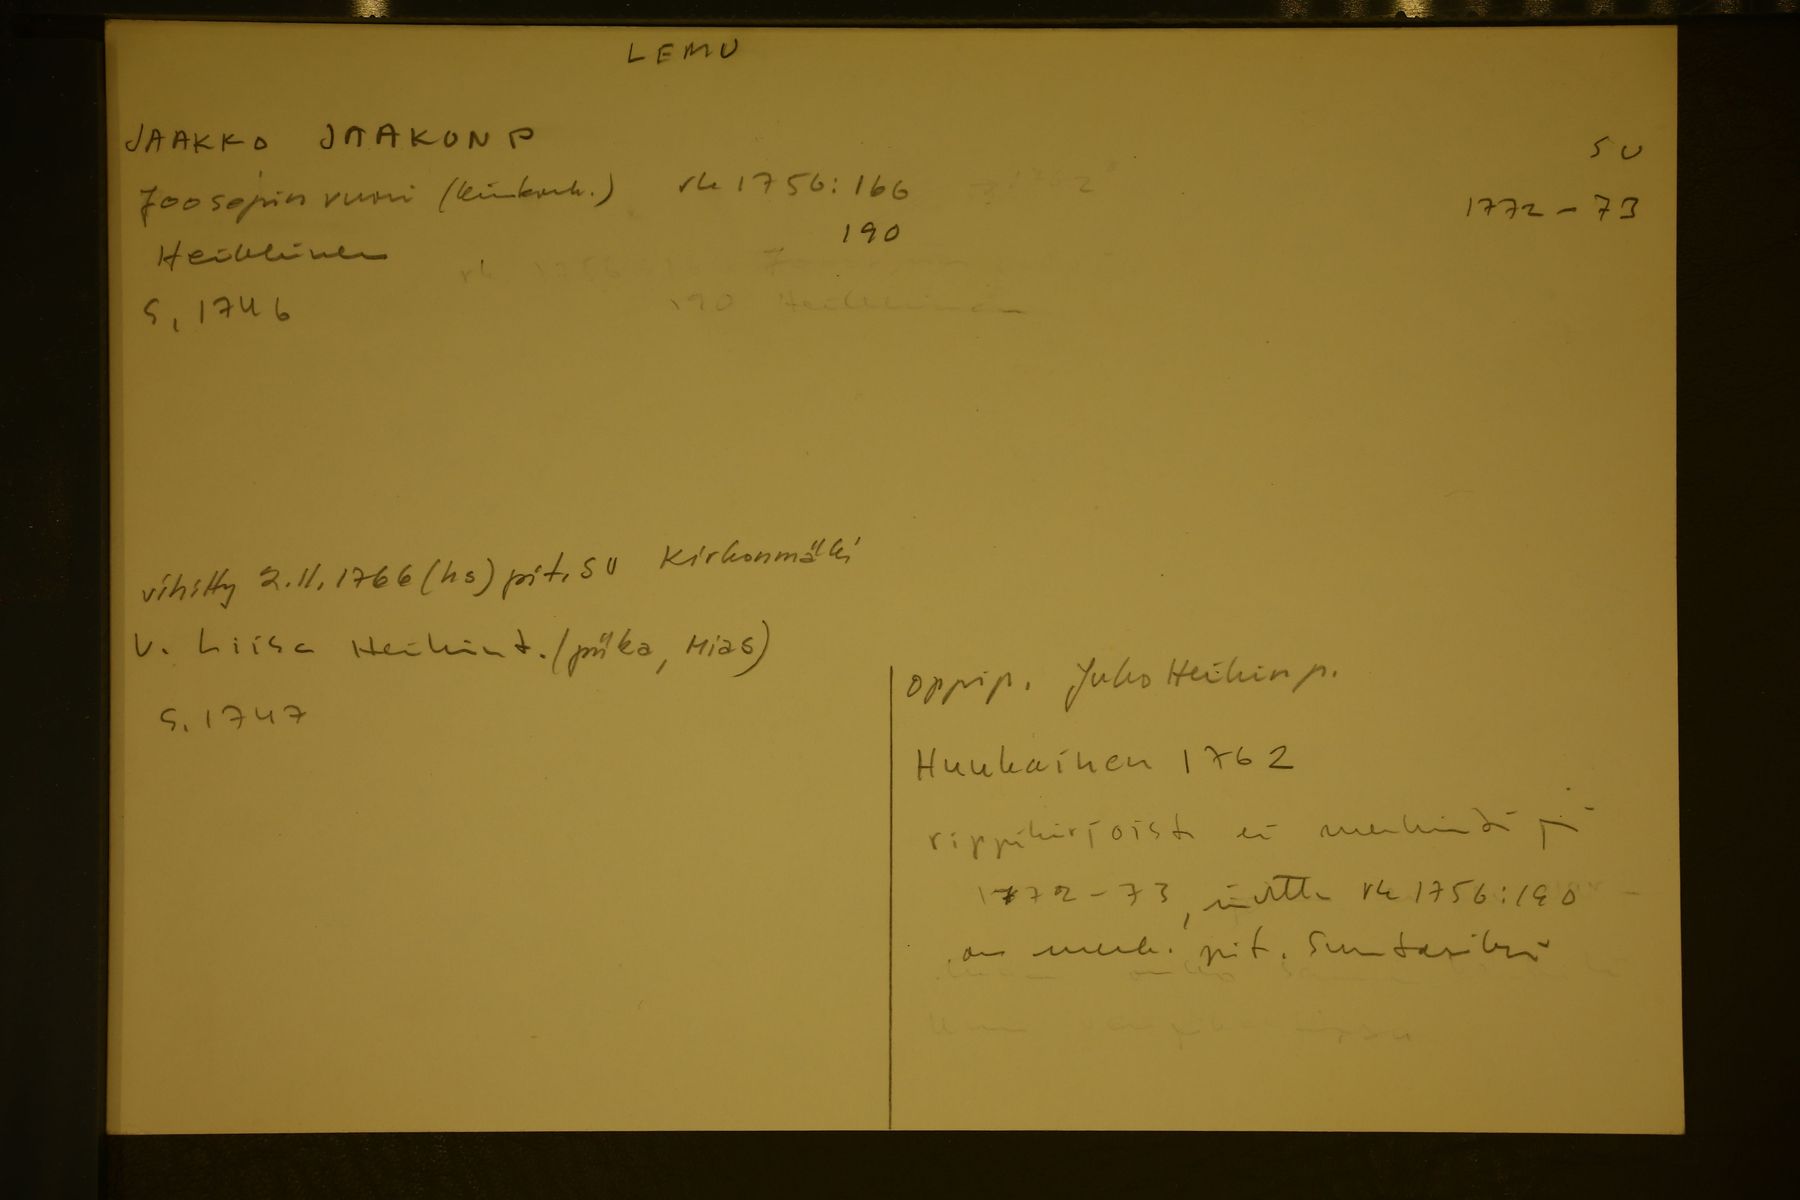 LEMU
JAAKKO JAAKON P
SU
Joosepin vuori (Kinkank.) rk 1756: 166
1772-73
190
Heikkinen
S. 1746
vihitty 2.11.1766 (hs) pit. SU Kirkonmäki
V. Liisa Heikint. (piika, Mias)
S. 1747
oppip. Juho Heikinp.
Huukainen 1762
rippikirjoista ei merkintää
1772-73, mutta rk 1756:190
on merk. pit. Suutariksi